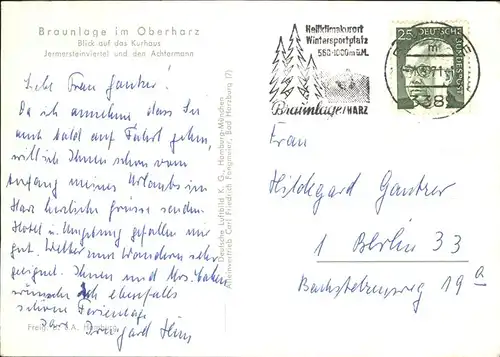 Braunlage im Oberharz
Blick auf das Kurhaus
Jermersteinviertel und den Achtermann
Liebe Frau Gantzer!
Da ich annehme dass Sie
auch bald auf Fahrt gehen,
will ich Ihnen schon vom
Anfang meines Urlaubs im
Harz herzliche Grüsse senden.
Hotel u. Umgebung gefallen mir
gut. Wetter zum Wandern sehr
geeignet. Ihnen und
wünsche ich ebenfalls
schöne Ferientage
Ihre Irmgard
Freig. Hamburg
Deutsche Luftbild K. G., Hamburg-München
Alleinvertrieb Carl Friedrich Fangmeier, Bad Harzburg (7)
Heilklimakurort
Wintersportplatz
560-1000m ü.M.
Braunlage HARZ
25
DEUTSCHE BUNDESPOST
m
3389
Frau
Hildegard Gantzer
1 Berlin 33
Bachstelzenweg 19a